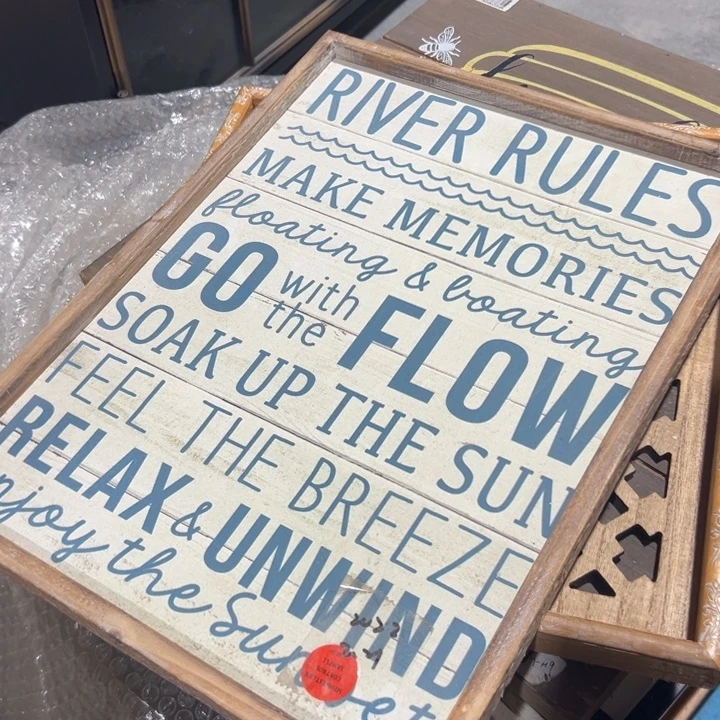 RIVER RULES
MAKE MEMORIES
floating & boating
GO with the FLOW
SOAK UP THE SUN
FEEL THE BREEZE
RELAX & UNWIND
njoy the Sun et
2022